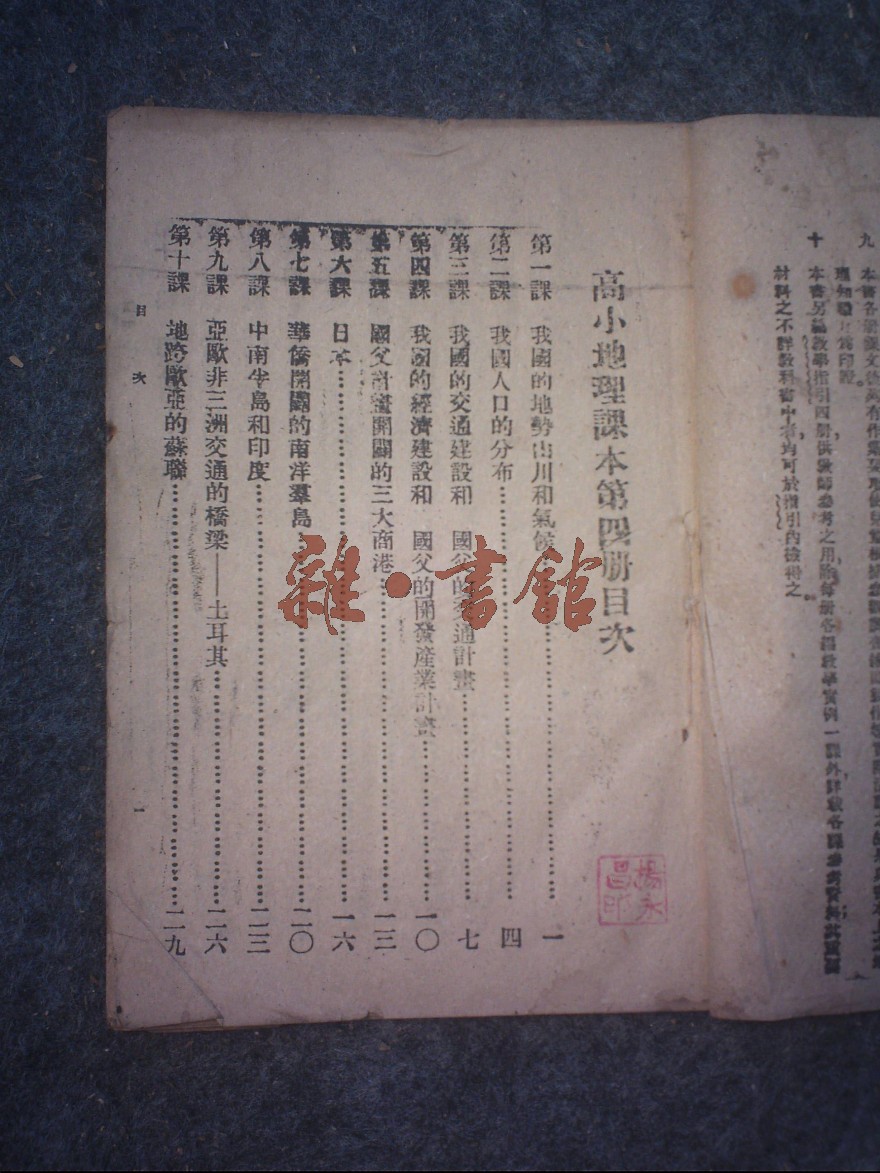 九 本書各
十 本書另編教學指引四册供教師參考之用除每册各編教學實例一課外詳載各課參考資料
材料之不詳教科書中者均可於指引內檢得之
高小地理課本第四册目次
第一課 我國的地勢山川和氣候 一
第二課 我國人口的分布 四
第三課 我國的交通建設和 國父的交通計畫 七
第四課 我國的經濟建設和 國父的開發產業計畫 一〇
第五課 國父計畫開闢的三大商港 一三
第六課 日本 一六
第七課 華僑開闢的南洋羣島 二〇
第八課 中南半島和印度 二三
第九課 亞歐非三洲交通的橋梁——土耳其 二六
第十課 地跨歐亞的蘇聯 二九
目次 一
楊永昌印
雜·書館